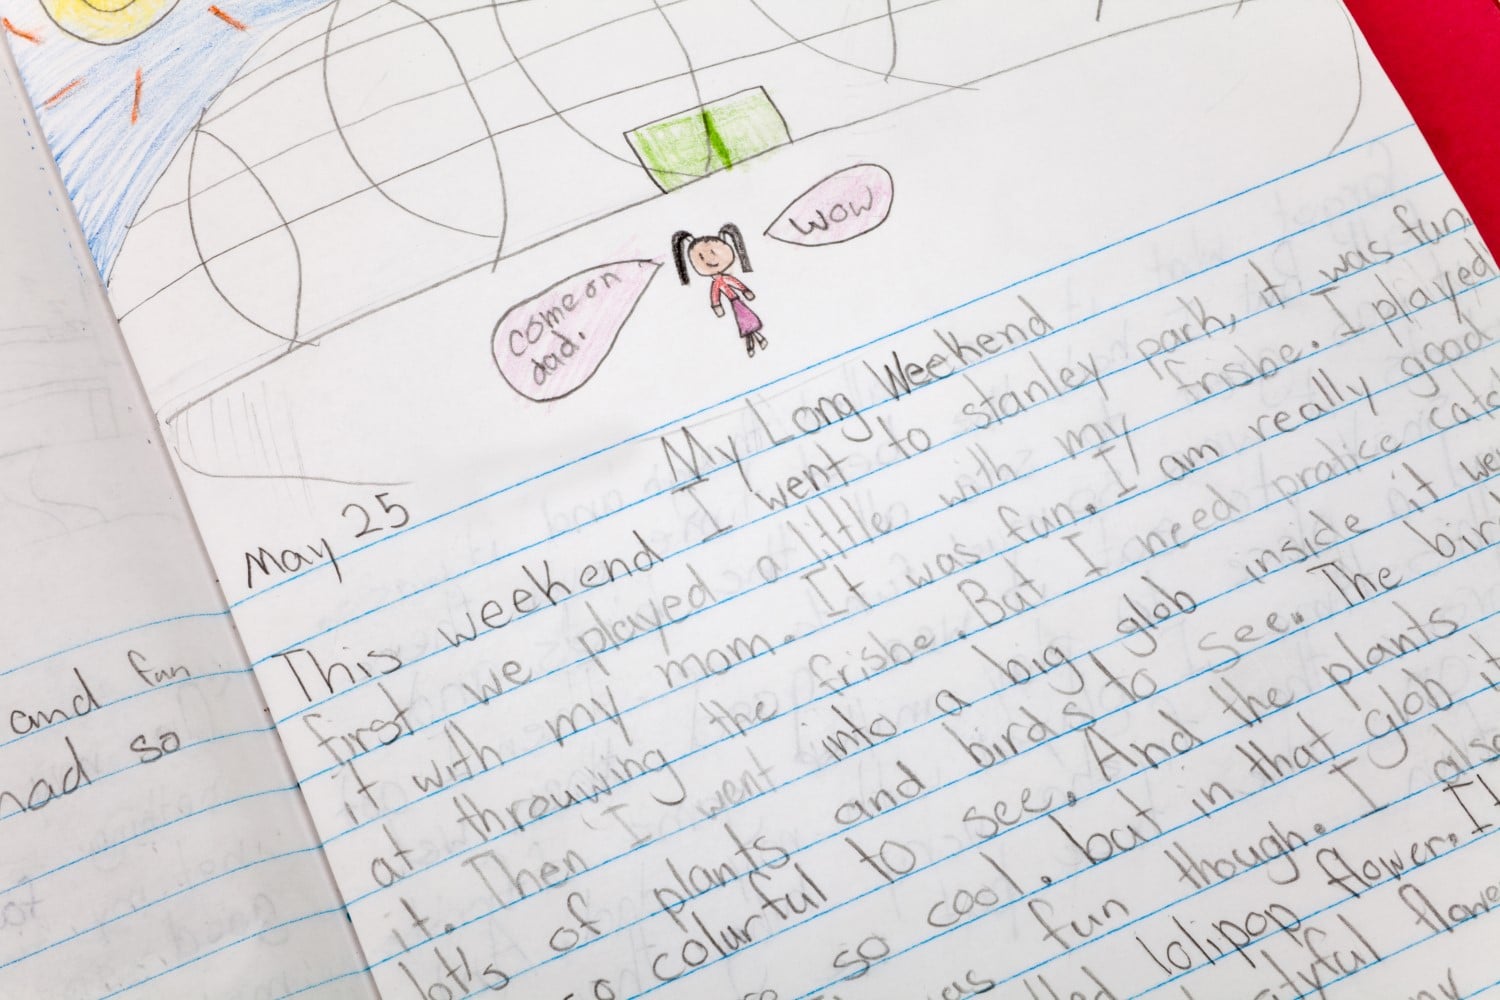 wow
come on
dad.
My Long Weekend
May 25
This weekend I went to stanley park, it was fun.
first we played a little with my frisbe. I played
it with my mom. It was fun. I am really good
at throuwing the frisbe. But I need pratice
it. Then I went into a big glob inside it
lot's of plants and birds to see. The
so colurful to see. And the plants
so cool. but in that glob it
fun though. I also
lolipop flower. It
my
and fun
had so